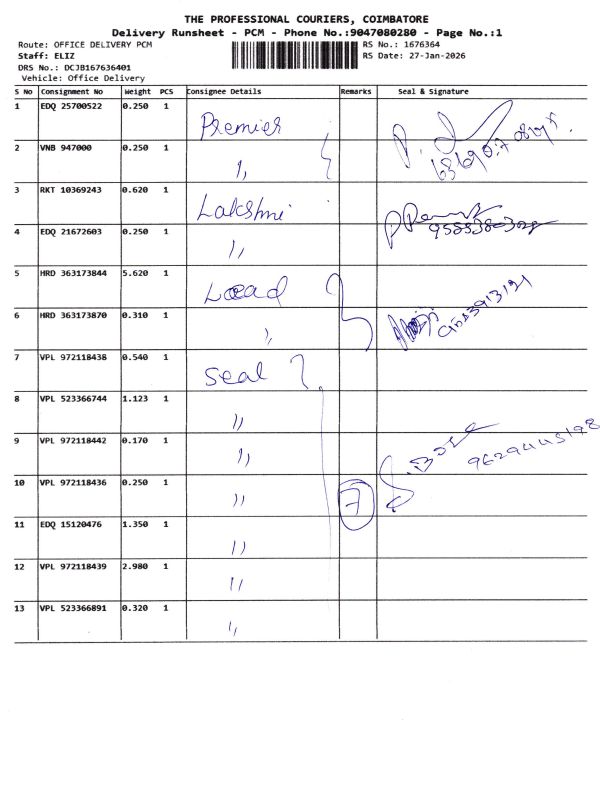 THE PROFESSIONAL COURIERS, COIMBATORE
Delivery Runsheet - PCM - Phone No.:9047080280 - Page No.:1
Route: OFFICE DELIVERY PCM
RS No.: 1676364
Staff: ELIZ
RS Date: 27-Jan-2026
DRS No.: DCJB167636401
Vehicle: Office Delivery
S No Consignment No Weight PCS Consignee Details Remarks Seal & Signature
1 EDQ 25700522 0.250 1 Premier
2 VNB 947000 0.250 1 ,,
3 RKT 10369243 0.620 1 Lakshmi
4 EDQ 21672603 0.250 1 ,,
5 HRD 363173844 5.620 1
6 HRD 363173870 0.310 1 ,,
7 VPL 972118438 0.540 1 Seal
8 VPL 523366744 1.123 1 ,,
9 VPL 972118442 0.170 1 ,, 9629445198
10 VPL 972118436 0.250 1 ,, 7
11 EDQ 15120476 1.350 1 ,,
12 VPL 972118439 2.980 1 ,,
13 VPL 523366891 0.320 1 ,,